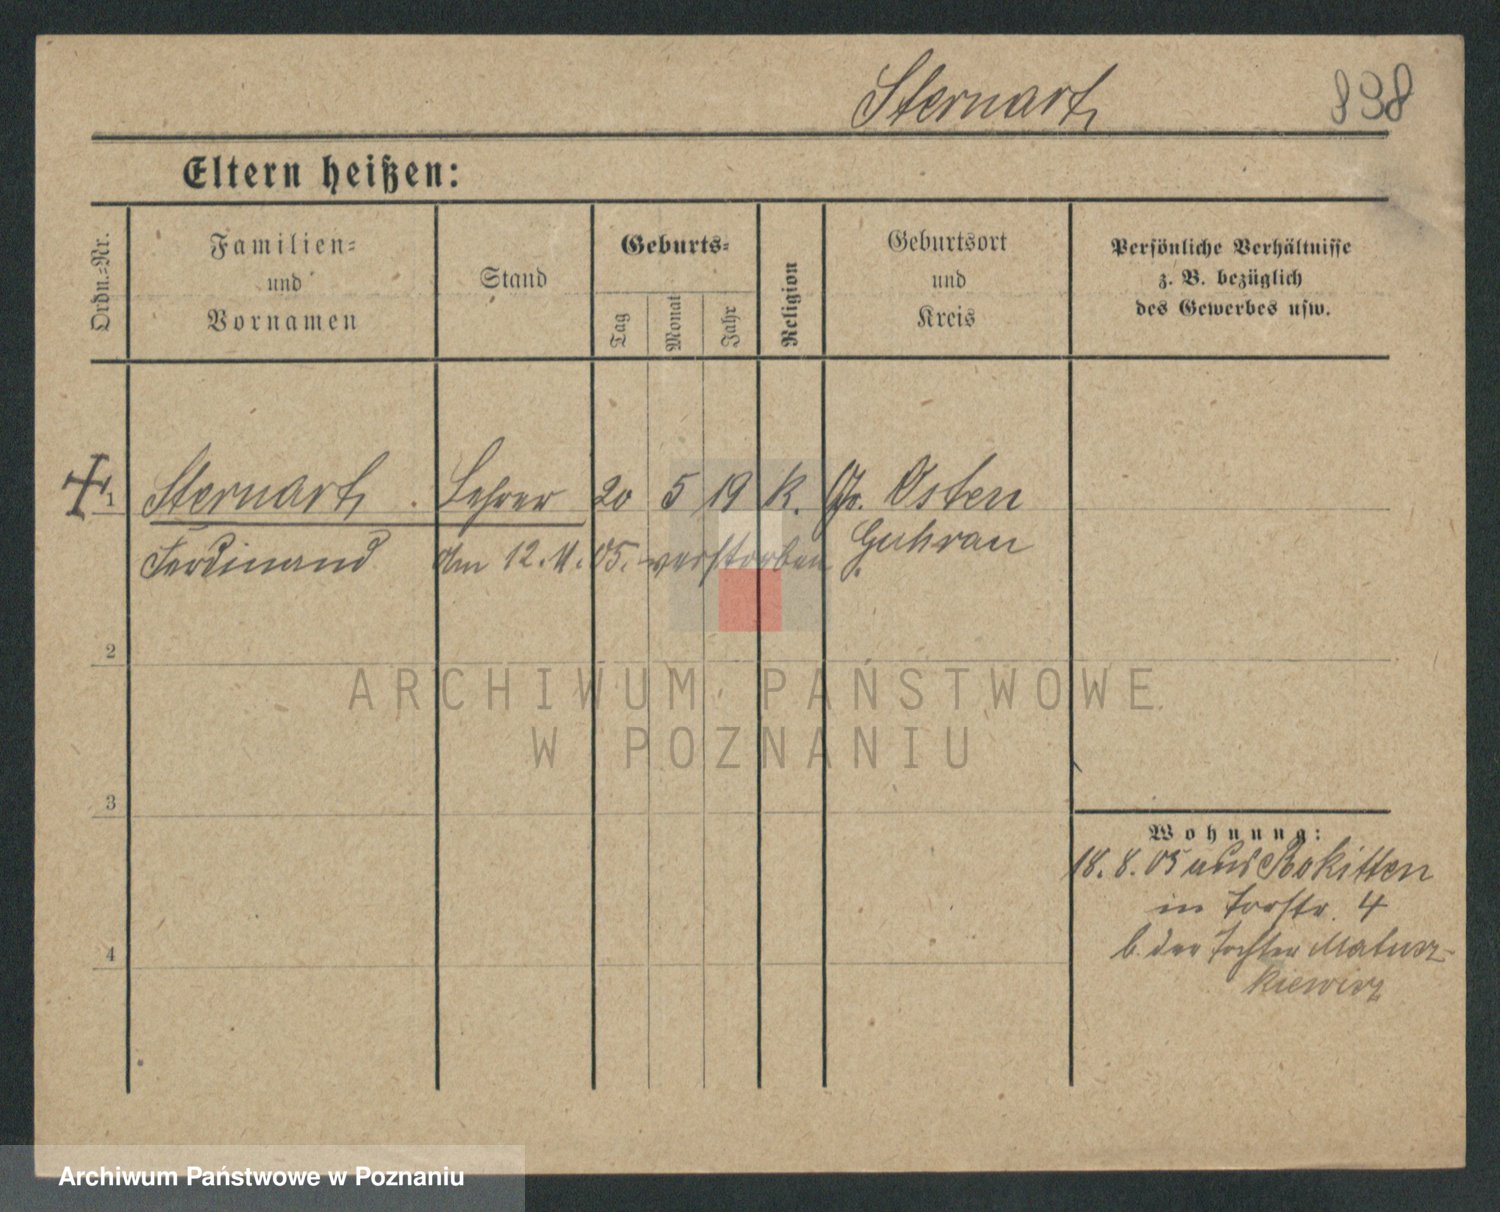 Sternart,
838
Eltern heißen:
Ordn.-Nr.
Familien-
und
Vornamen
Stand
Geburts-
Tag
Monat
Jahr
Religion
Geburtsort
und
Kreis
Persönliche Verhältnisse
z. B. bezüglich
des Gewerbes usw.
1
Sternart, Lehrer 20 5 19 k. Gr. Osten
Ferdinand am 12. 11. 05. verstorben Guhrau
2
ARCHIWUM PAŃSTWOWE
W POZNANIU
3
Wohnung:
18. 8. 05 aus Rokitten
in Torstr. 4
b. der Tochter Matusz-
kiewicz
4
Archiwum Państwowe w Poznaniu